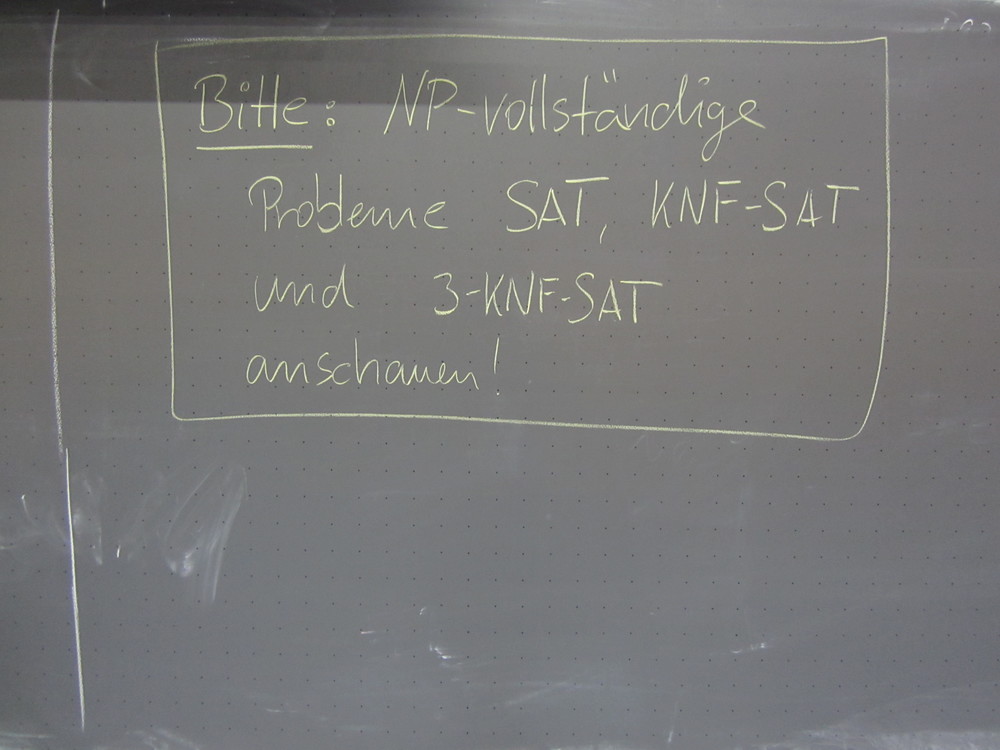 Bitte: NP-vollständige
Probleme SAT, KNF-SAT
und 3-KNF-SAT
anschauen!